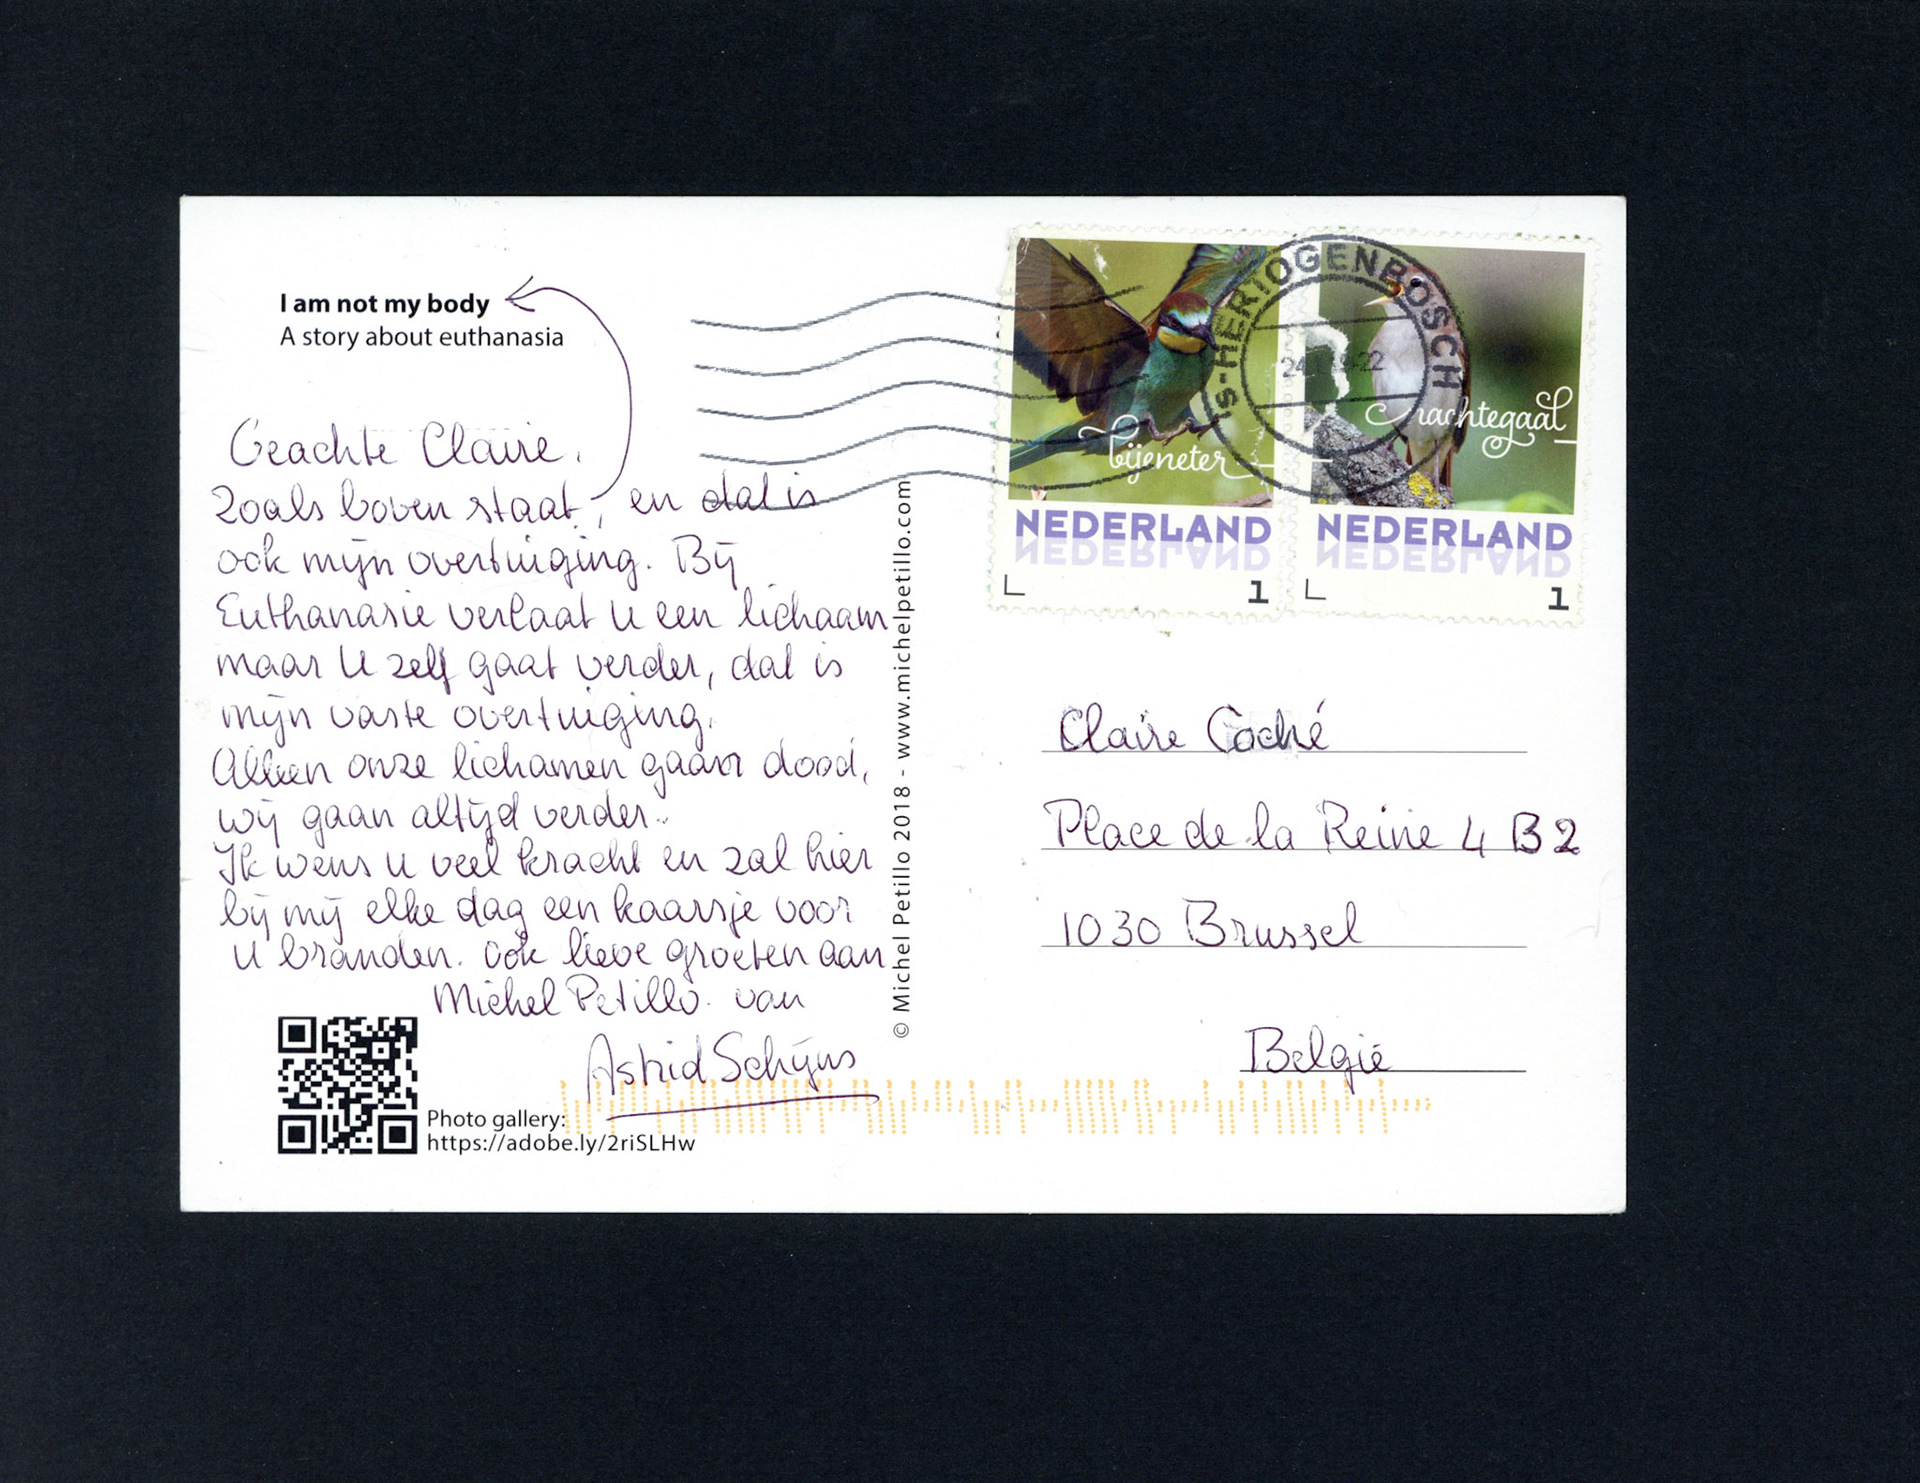 I am not my body
A story about euthanasia
Geachte Claire,
zoals boven staat, en dat is
ook mijn overtuiging. Bij
Euthanasie verlaat U een lichaam
maar U zelf gaat verder, dat is
mijn vaste overtuiging.
Alleen onze lichamen gaan dood,
wij gaan altijd verder..
Ik wens u veel kracht en zal hier
bij mij elke dag een kaarsje voor
u branden. Ook lieve groeten aan
Michel Petillo. van
Astrid Schijns
Photo gallery:
https://adobe.ly/2riSLHw
© Michel Petillo 2018 - www.michelpetillo.com
bijeneter
NEDERLAND
1
nachtegaal
NEDERLAND
1
's-HERTOGENBOSCH
Claire Coché
Place de la Reine 4 B2
1030 Brussel
België